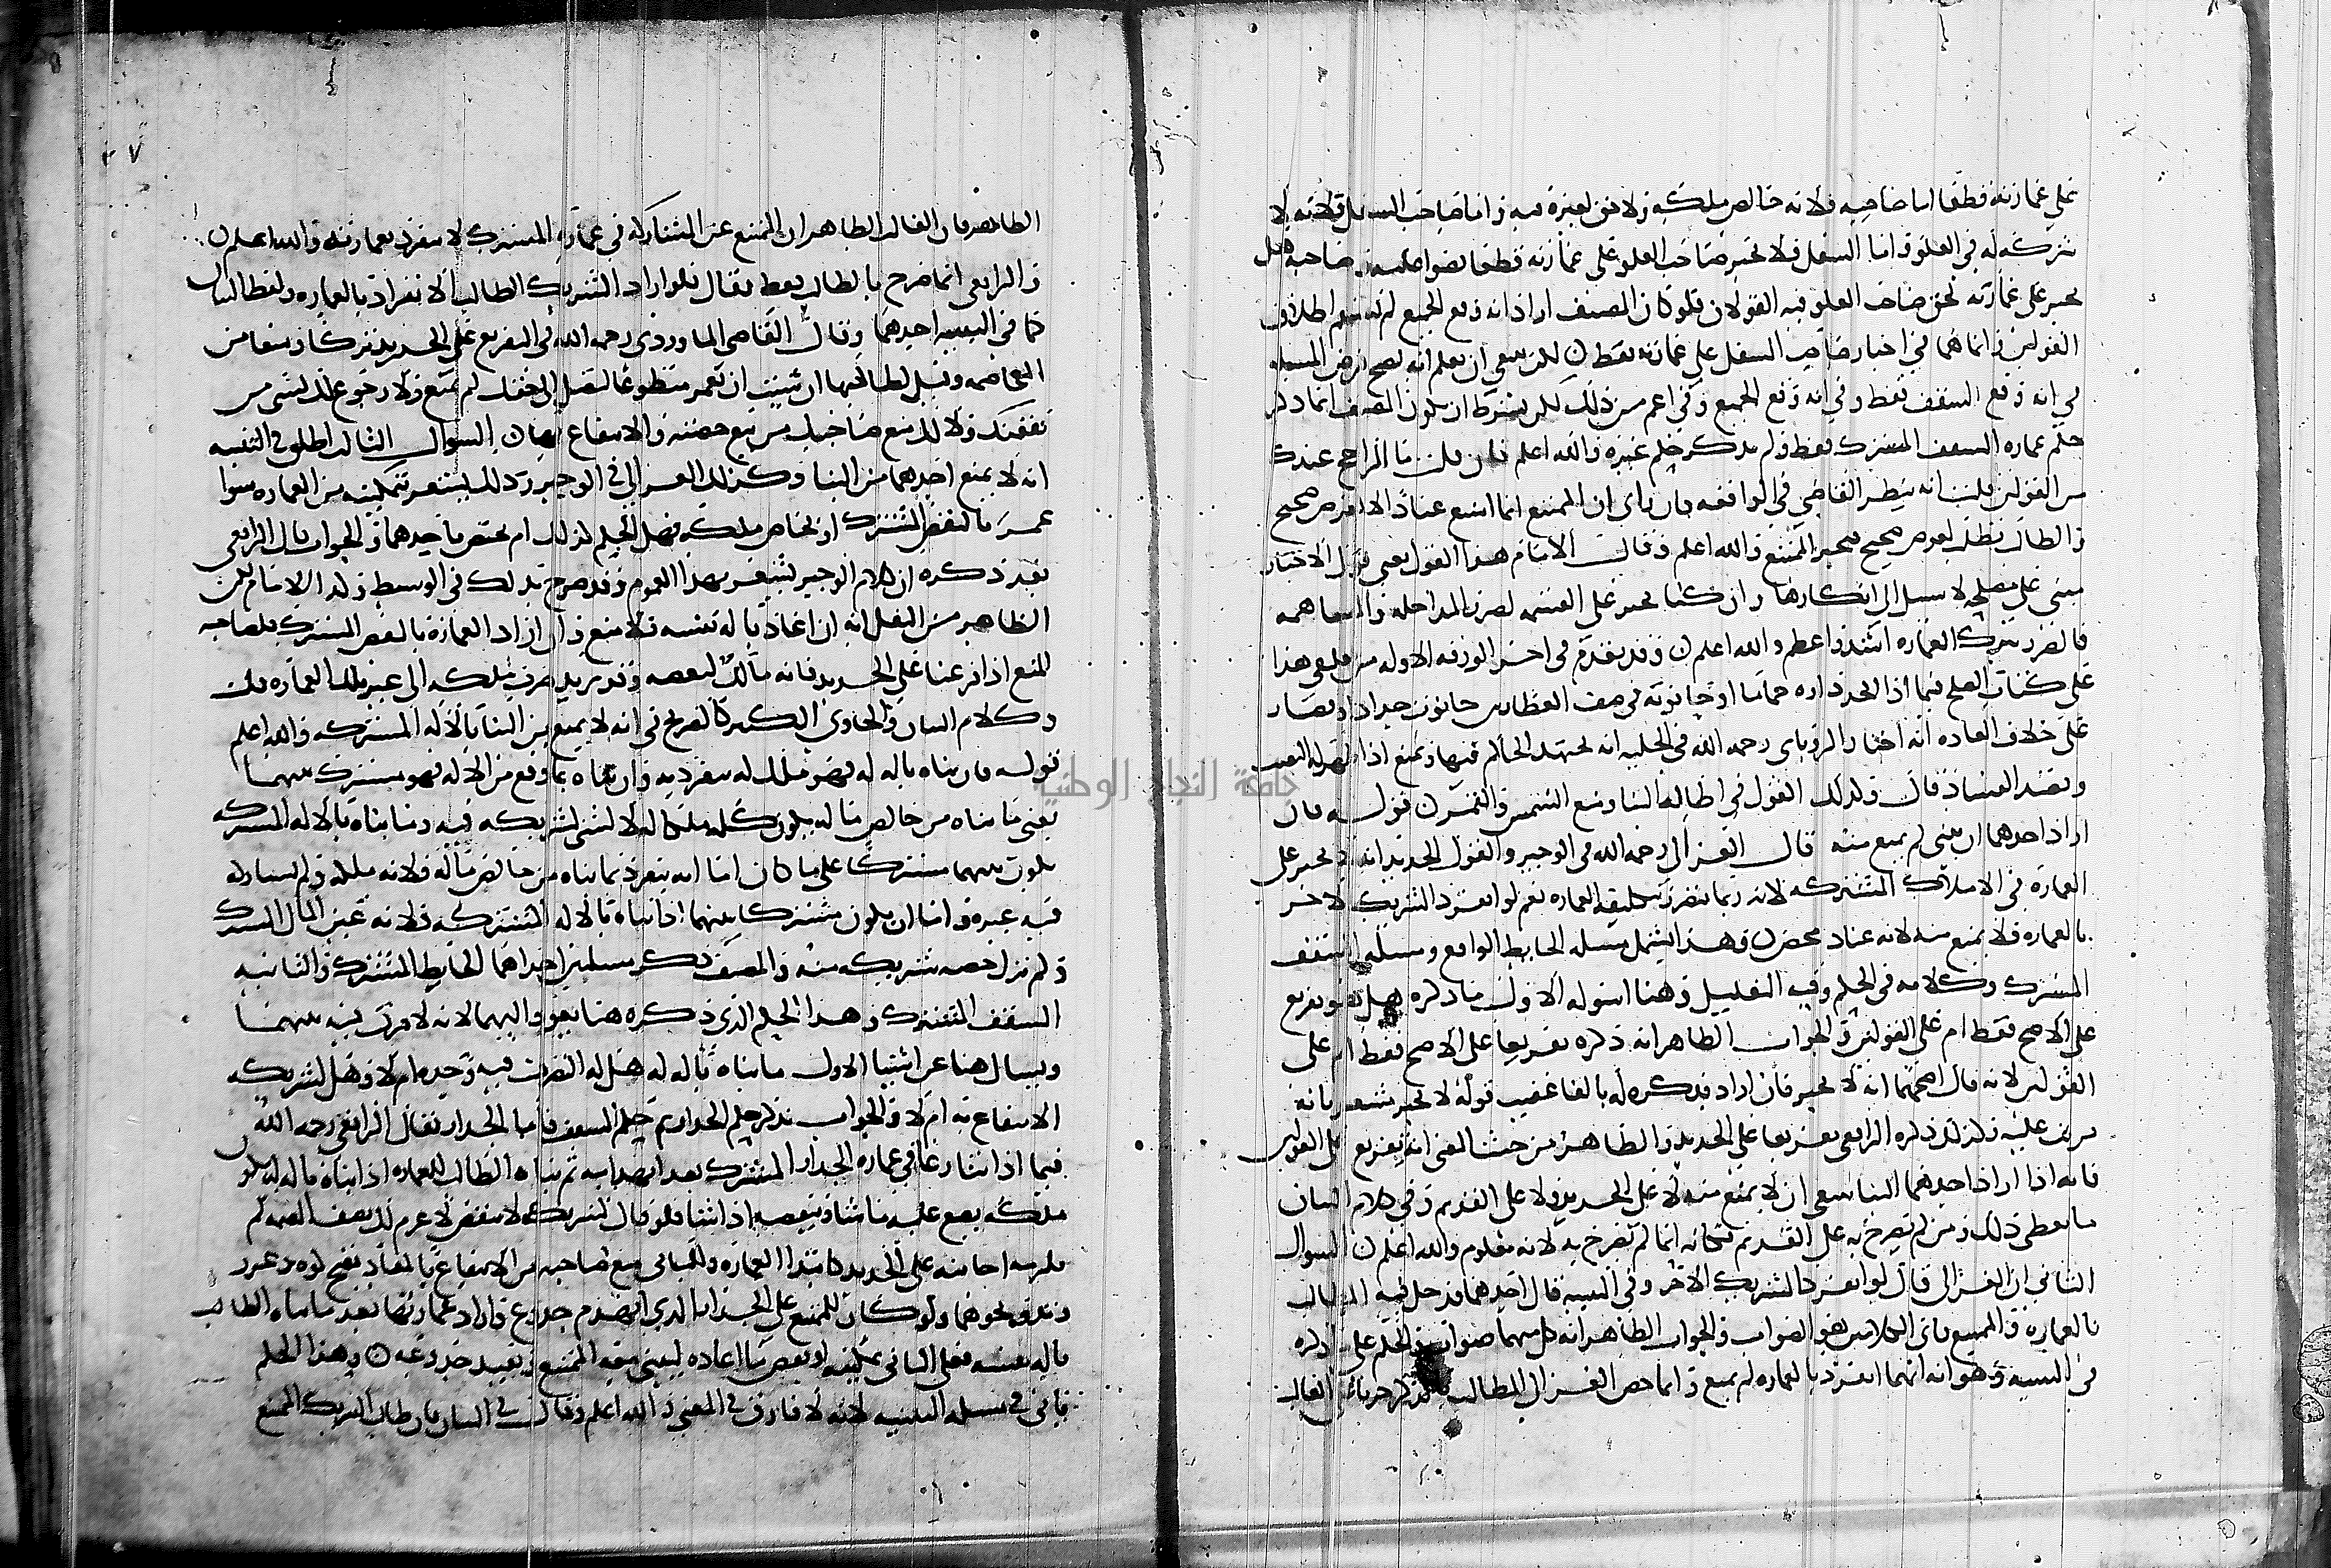 على عمارته قطعا اما صاحبه فلانه خالص ملكه ولا حق لغيره فيه واما صاحب السفل فلانه لا
شركه له في العلو واما السفل فلا يجبر صاحب العلو على عمارته قطعا صاحبه هل
يجبر على عمارته لحق صاحب العلو فيه القولان فلو كان المصنف اراد انه وقع الجميع لم اطلاق
القولين وانما هما في اجبار صاحب السفل على عمارته فقط لكن ينبغي ان يعلم انه يصح فرض المسله
في انه وقع السقف فقط وفي انه وقع الجميع وفي اعم من ذلك لكن بشرط ان يكون المصنف انما ذكر
حكم عماره السقف المشترك فقط ولم يذكر حكم غيره والله اعلم فان قلت ما الراجح عندك
من القولين قلت انه ينظر القاضي في الواقعه فان راى ان الممتنع انما امتنع عنادا لا لغرض صحيح
والطالب يطلب لغرض صحيح فيجبر الممتنع والله اعلم وقال الامام هذا القول يعني قول الاجبار
مبني على مصلحه لا سبيل الى انكارها وان كنا نجبر على القسمه لضرر المداخله والمساهمه
فالضرر بترك العماره اشد واعظم والله اعلم وقد تقدم في اخر الورقه الاوله من على هذا
على كتاب الصلح فيما اذا اتخذ داره حماما او حانوته في صف العطارين حانوت حداد او قصار
على خلاف العاده انه اختار الروياني رحمه الله في الحليه انه يجتهد الحاكم فيها ويمنع اذا ظهر له التعنت
وقصد الفساد قال وكذلك القول في اطاله البنا ومنع الشمس والقمر قوله فان
اراد احدهما ان يبني لم يمنع منه قال الغزالي رحمه الله في الوجيز والقول الجديد انه لا يجبر على
العماره في الاملاك المشتركه لانه ربما يتضرر بتكليف العماره نعم لو انفرد الشريك الاخر
بالعماره فلا يمنع منه لانه عناد محض وهذا يشمل مسله الحايط الواقع ومسله السقف
المشترك وكلامه في الحكم وفيه التعليل وهنا اسوله الاول ما ذكره هل هو تفريع
على الاصح فقط ام على القولين والجواب الظاهر انه ذكره تفريعا على الاصح فقط ام على
القولين لانه قال اصحهما انه لا يجبر فان اراد فذكره له بالفا عقيب قوله لا يجبر يشعر بانه
مرتب عليه وكذلك ذكره الرافعي تفريعا على الجديد والظاهر من حيث المعنى انه تفريع على القولين
فانه اذا اراد احدهما البنا ينبغي ان لا يمنع منه لا على الجديد ولا على القديم وفي كلام البيان
ما يعطي ذلك ومن لم يصرح به على القديم فكانه انما لم يصرح به لانه معلوم والله اعلم السوال
الثاني ان الغزالي قال لو انفرد الشريك الاخر وفي التنبيه قال احدهما فدخل فيه الطالب
بالعماره والممتنع فاي الكلامين هو الصواب والجواب الظاهر انه كل منهما صواب والحكم على ما ذكره
في التنبيه وهو انه ايهما انفرد بالعماره لم يمنع وانما خص الغزالي الطالب بالذكر جريا على الغالب
١٣٧
الظاهر فان الغالب الظاهر ان الممتنع عن المشاركه في عماره المشترك لا ينفرد بعمارته والله اعلم
والرافعي انما صرح بالطالب فقط فقال فلو اراد الشريك الطالب الانفراد بالعماره ولفظ البيان
كما في التنبيه احدهما وقال القاضي الماوردي رحمه الله في التفريع على الجديد يتركا ومنعا من
المخاصمه وقيل لطالبها ان شيت ان تعمر متطوعا لتصل الى حقك لم تمنع ولا رجوع لك بشي من
نفقتك ولا لك منع صاحبك من بيع حصته والانتفاع بها السوال الثالث اطلق في التنبيه
انه لا يمنع احدهما من البنا وكذلك الغزالي في الوجيز وذلك يشعر بتمكينه من العماره سوا
عمر بالنقض المشترك او بخاص ملكه فهل الحكم كذلك ام يختص باحدهما والجواب قال الرافعي
بعد ذكره ان كلام الوجيز يشعر بهذا العموم وقد صرح بذلك في الوسيط وكذا الامام لكن
الظاهر من النقل انه ان اعاد بآله نفسه فلا منع وان اراد العماره بالنقض المشترك فلصاحبه
المنع اذا فرعنا على الجديد فانه مالك لبعضه وقد يريد صرف ملكه الى غير تلك العماره قلت
وكلام البيان والحاوي الكبير كالصريح في انه لا يمنع من البنا بالاله المشتركه والله اعلم
قوله فان بناه بآله له فهو ملك له ينفرد به وان بناه بما وقع من الاله فهو مشترك بينهما
يعني ما بناه من خالص ماله يكون كله ملكا له لا شي لشريكه فيه وما بناه بالاله المشتركه
يكون بينهما مشتركا على ما كان اما انه ينفرد بما بناه من خالص ماله فلانه ملكه ولم يشاركه
فيه غيره واما ان يكون مشتركا بينهما اذا بناه بالاله المشتركه فلانه عين المال المشترك
ولم تزل حصه شريكه منه والمصنف ذكر مسلتين احداهما الحايط المشترك والثانيه
السقف المشترك وهذا الحكم الذي ذكره هنا يعود اليهما لانه لا فرق فيه بينهما
ويسال هنا عن اشيا الاول ما بناه بآله له هل له التصرف فيه وحده ام لا وهل لشريكه
الانتفاع به ام لا والجواب نذكر حكم الجدار ثم حكم السقف فاما الجدار فقال الرافعي رحمه الله
فيما اذا تنازعا في عماره الجدار المشترك بعد انهدامه ثم بناه الطالب للعماره اذا بناه بآله له يكون
ملكه يضع عليه ما شا وينقضه اذا شا فلو قال لشريكه لا تنقض لاغرم لك نصف القيمه لم
يلزمه اجابته على الجديد كابتدا العماره وللباني منع صاحبه من الانتفاع بالمعاد بفتح كوه وغرز
وتد ونحوهما ولو كان للممتنع على الجدار الذي انهدم جذوع واراد عمارتها بعد ما بناه الطالب
بآله نفسه فعلى الباني تمكينه او نقض ما اعاده ليبني معه الممتنع ويعيد جذوعه وهذا الحكم
ياتي في مسله التنبيه لانه لا فارق في المعنى والله اعلم وقال في البيان فان طالب الشريك الممتنع